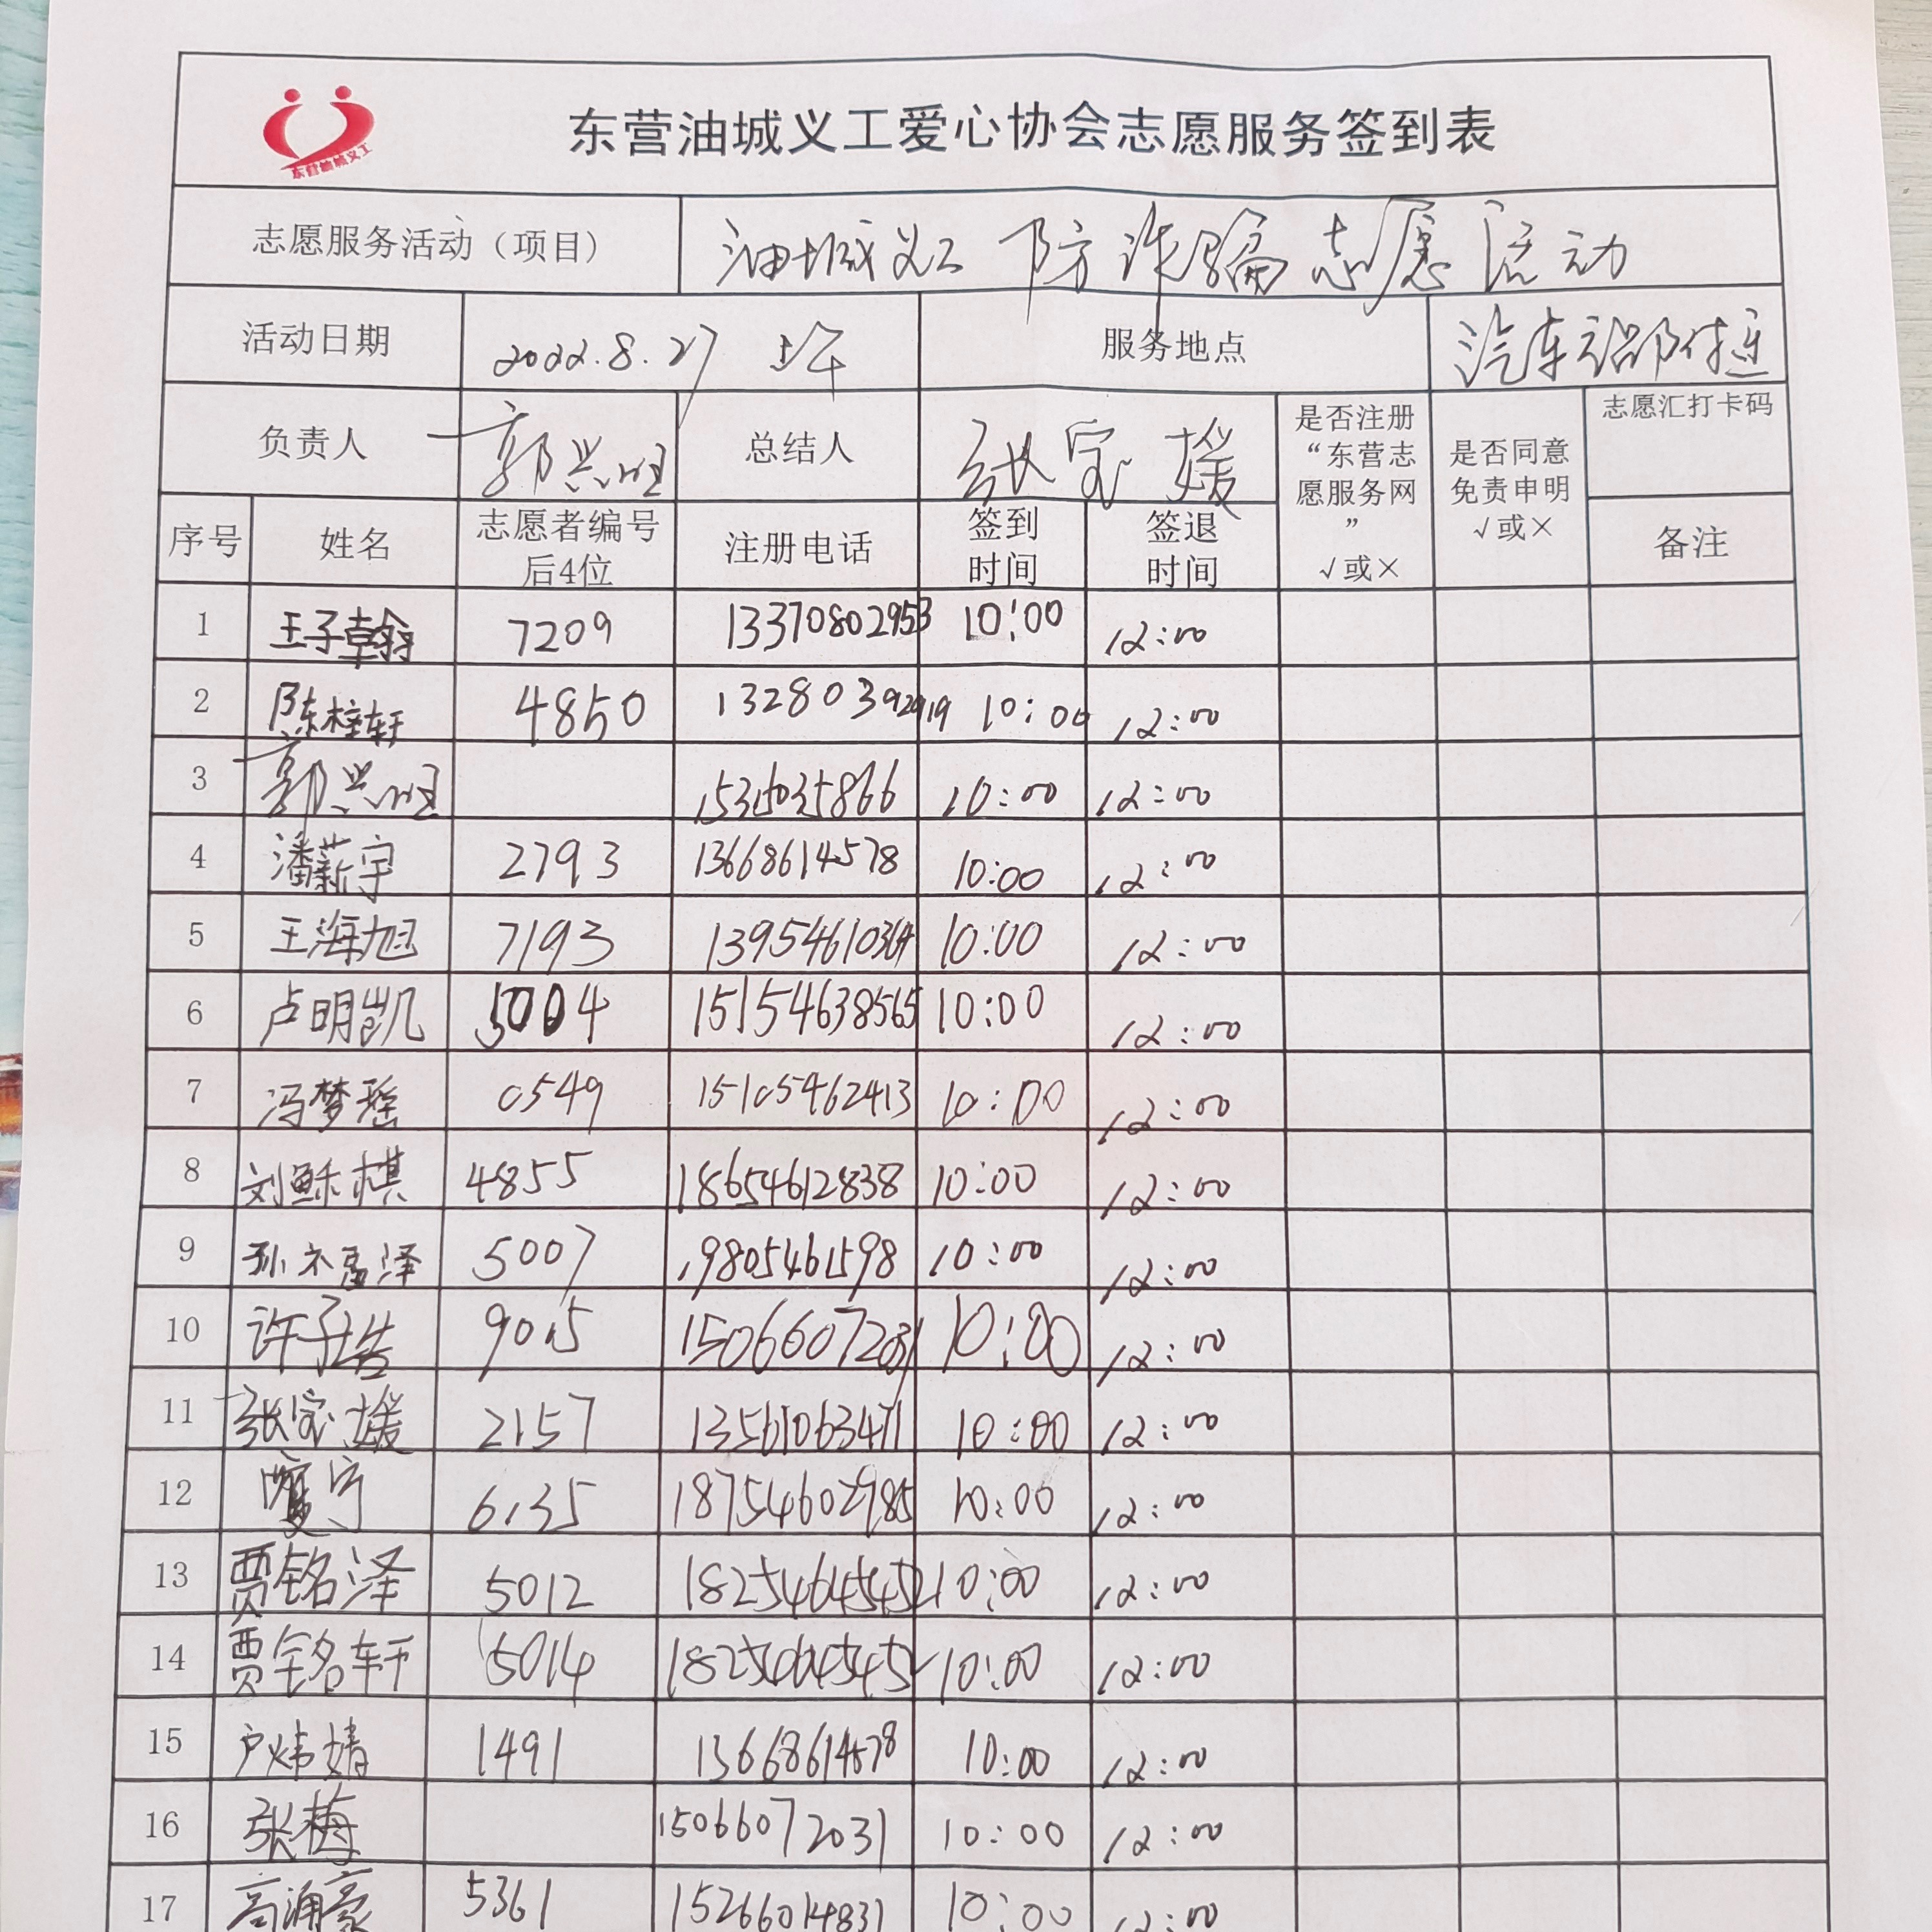 东营油城义工
东营油城义工爱心协会志愿服务签到表
志愿服务活动（项目） 油城义工 防诈骗志愿活动
活动日期 2022.8.27 上午 服务地点 汽车站附近
负责人 郭兴旺 总结人 张宝媛 是否注册“东营志愿服务网” √或× 是否同意免责申明 √或× 志愿汇打卡码
序号 姓名 志愿者编号后4位 注册电话 签到时间 签退时间 备注
1 王子翰 7209 13370802953 10:00 12:00
2 陈梓轩 4850 10:00 12:00
3 郭兴旺 10:00 12:00
4 潘薪宇 2793 13668614578 10:00 12:00
5 王海旭 7193 13954610364 10:00 12:00
6 卢明凯 5004 15154638565 10:00 12:00
7 冯梦瑶 0549 15105462413 10:00 12:00
8 刘稣棋 4855 18654612838 10:00 12:00
9 5007 19805461598 10:00 12:00
10 许子浩 9015 15066072031 10:00 12:00
11 张宝媛 2157 13561063471 10:00 12:00
12 6135 18754602985 10:00 12:00
13 贾铭泽 5012 18254645452 10:00 12:00
14 贾铭轩 5014 18254645452 10:00 12:00
15 卢炜婧 1491 13668614578 10:00 12:00
16 张梅 15066072031 10:00 12:00
17 5361 15266014831 10:00 12:00